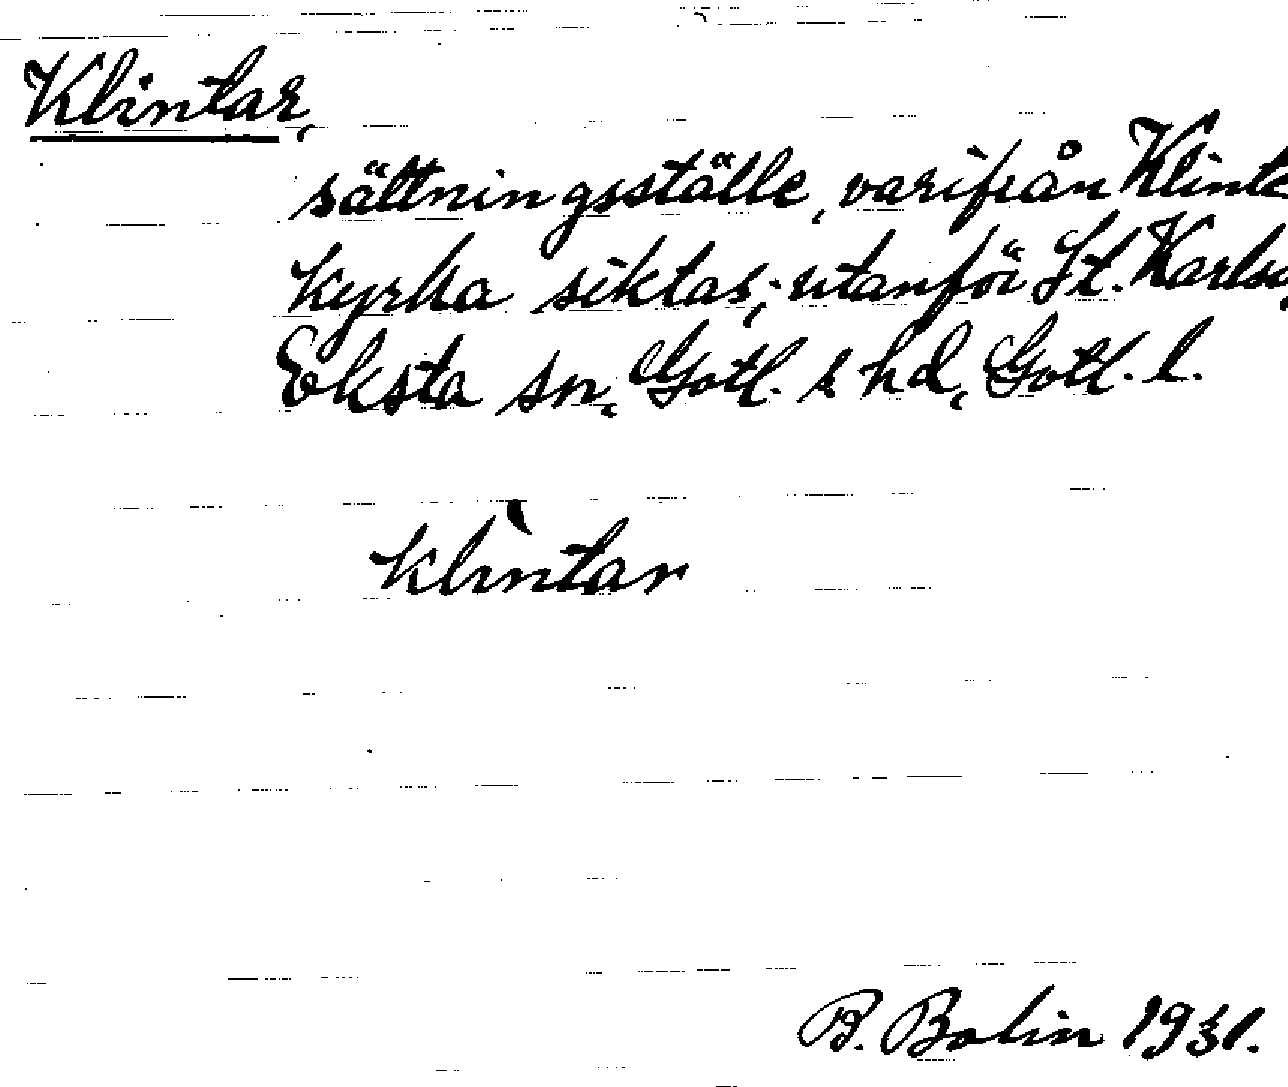 Klintar,
sättningsställe, varifrån Klinte
kyrka siktas; utanför St. Karlsö,
Eksta sn, Gotl. s hd, Gotl. l.
klìntar
B. Bolin 1931.